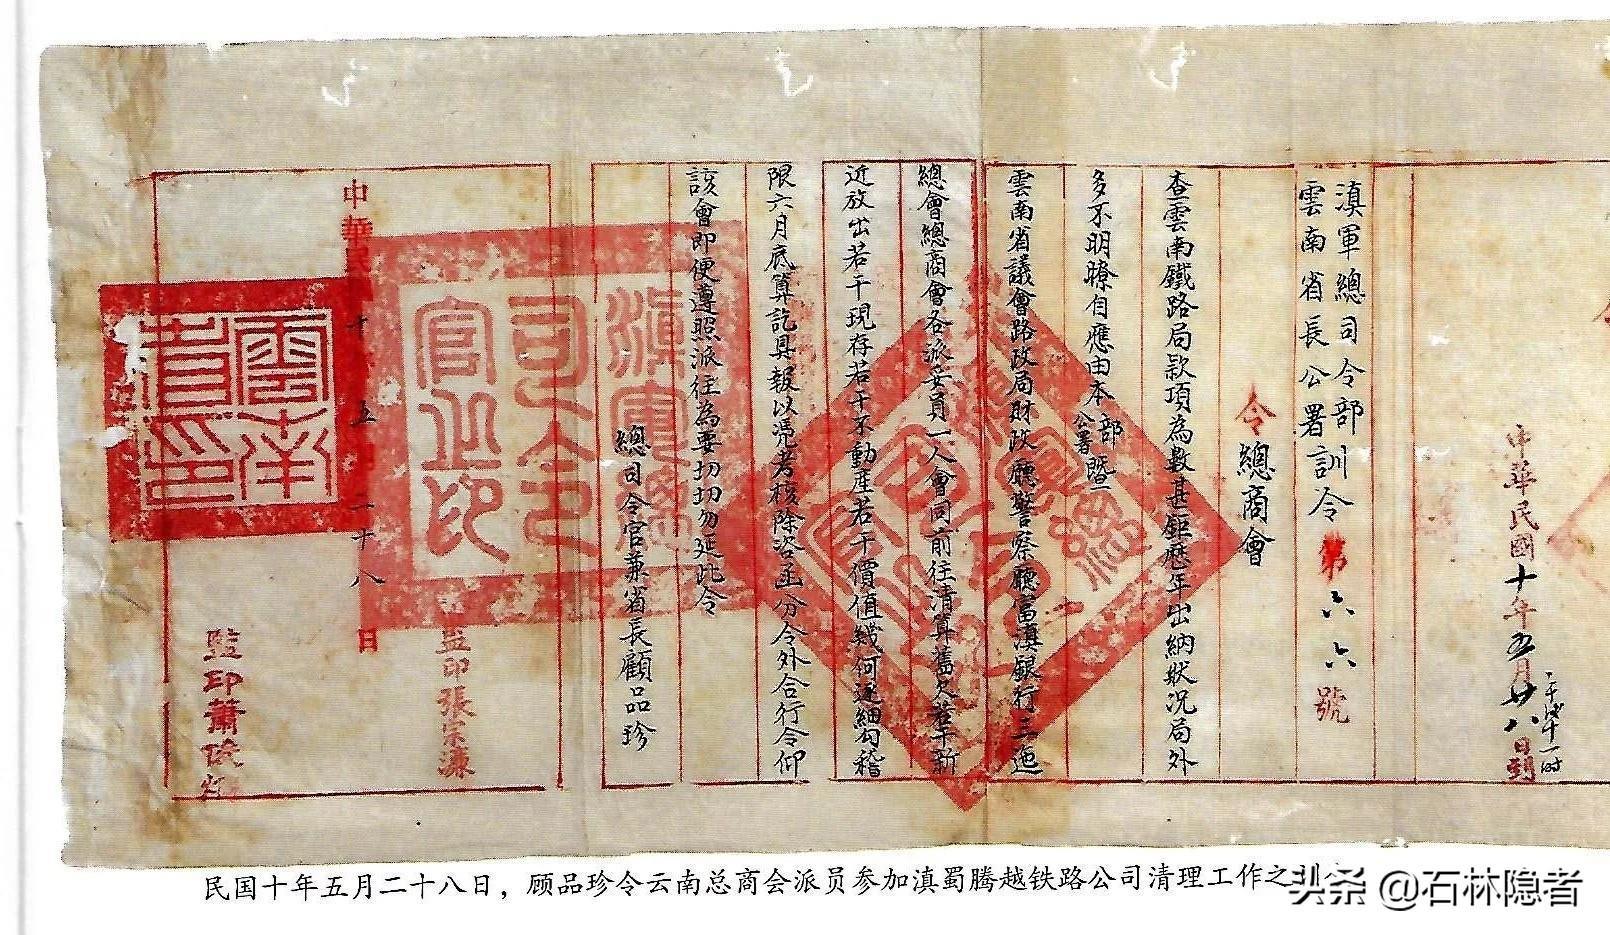 中華民國十年五月廿八日到
上午十一时
滇軍總司令部
雲南省長公署訓令第六六號
令總商會
查雲南鐵路局款項為數甚鉅歷年出納狀況局外
多不明瞭自應由本部公署暨
雲南省議會路政局財政廳警察廳富滇銀行三迤
總會總商會各派妥員一人會同前往清算舊欠若干新
近放出若干現存若干不動產若干價值幾何逐細勾稽
限六月底算訖具報以憑考核除咨函分令外合行令仰
該會即便遵照派往為要切切勿延此令
總司令官兼省長顧品珍
滇軍總
司令
官之印
監印張
中華
十
五
二十八
日
雲南
省印
監印蕭
民国十年五月二十八日，顾品珍令云南总商会派员参加滇蜀腾越铁路公司清理工作之训
头条 @石林隐者